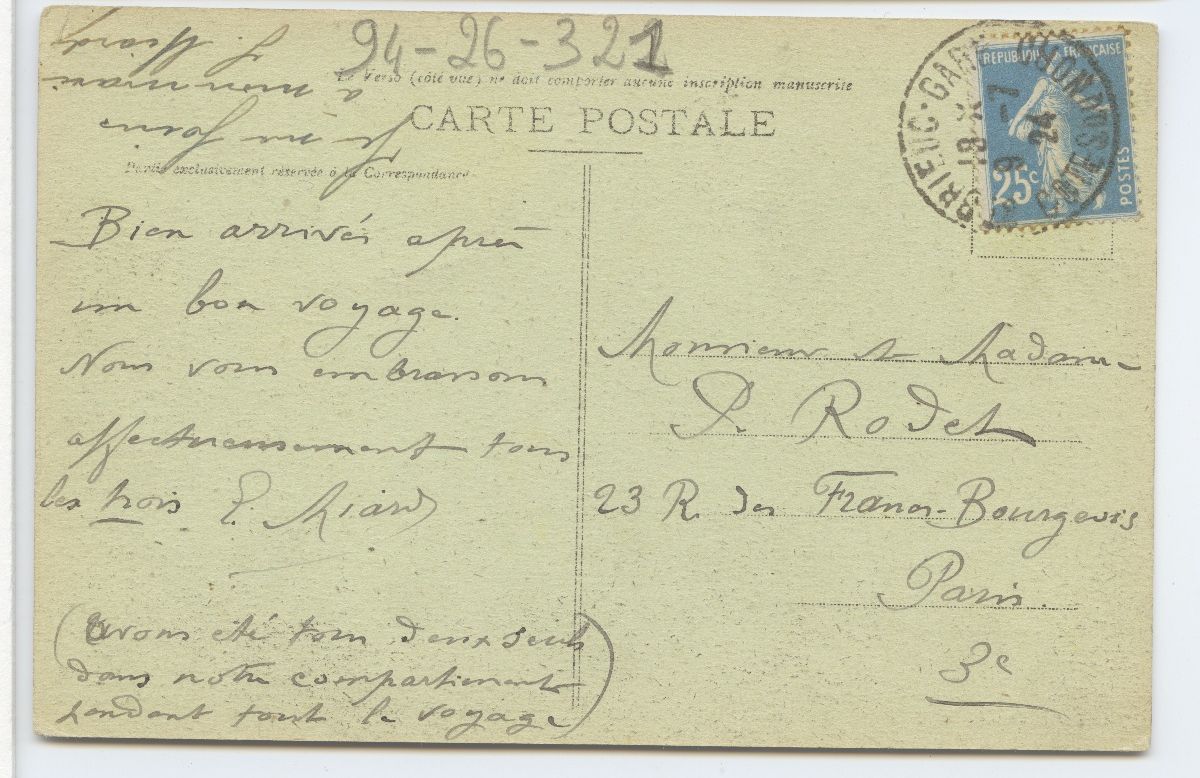 94-26-321
Le Verso (côté vue) ne doit comporter aucune inscription manuscrite
CARTE POSTALE
Partie exclusivement réservée à la Correspondance
J. Miard
à mon mari
Je me joins
Bien arrivés après
un bon voyage.
Nous vous embrassons
affectueusement tous
les trois P. Miard
(avons été tous deux seuls
dans notre compartiment
pendant tout le voyage)
REPUBLIQUE FRANÇAISE
25c
POSTES
BRIEUC-GARE
18
9-7
24
COTES
Monsieur et Madame
P. Rodet
23 R. des Francs-Bourgeois
Paris.
3e